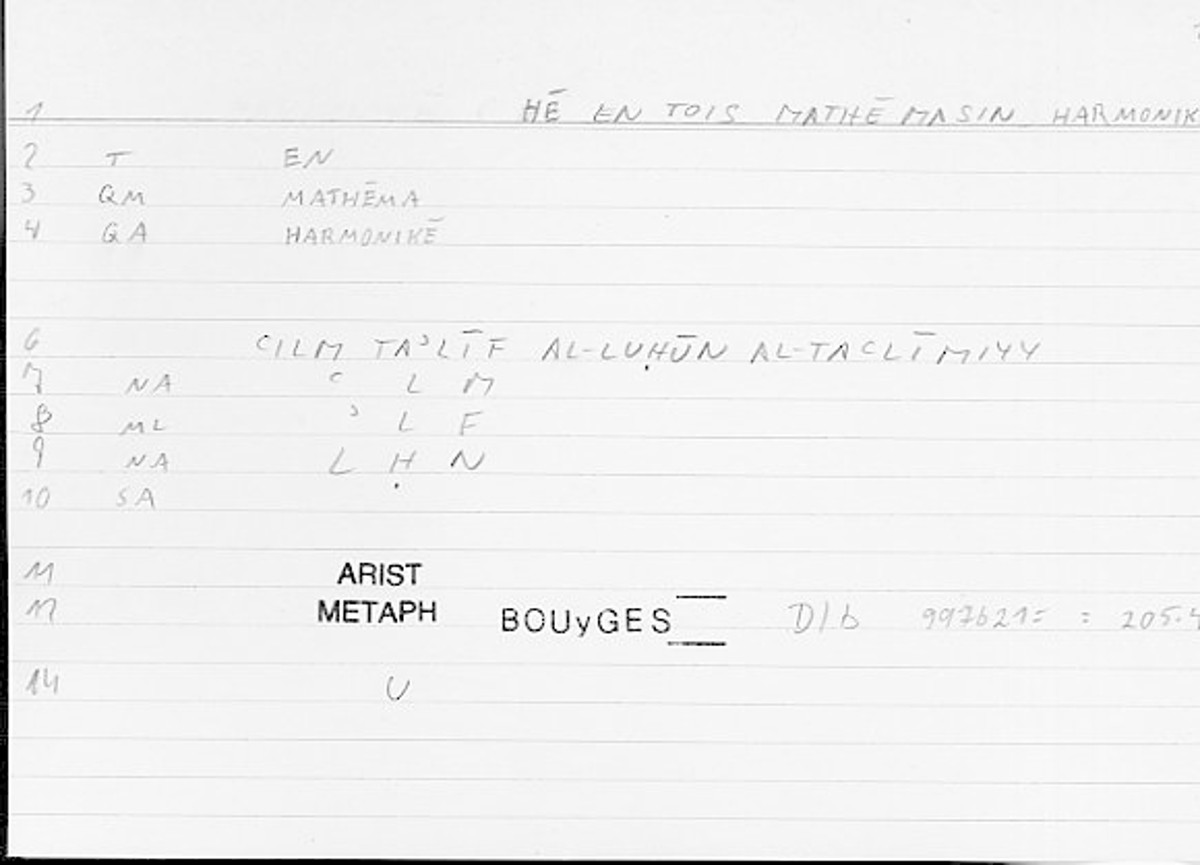 1 HĒ EN TOIS MATHĒMASIN HARMONIK
2 T EN
3 QM MATHĒMA
4 QA HARMONIKĒ
6 ʿILM TAʾLĪF AL-LUḤŪN AL-TAʿLĪMIYY
7 NA ʿ L M
8 ML ʾ L F
9 NA L Ḥ N
10 SA
11 ARIST
12 METAPH BOUyGES D/b 997b21 = : 205.4
14 U